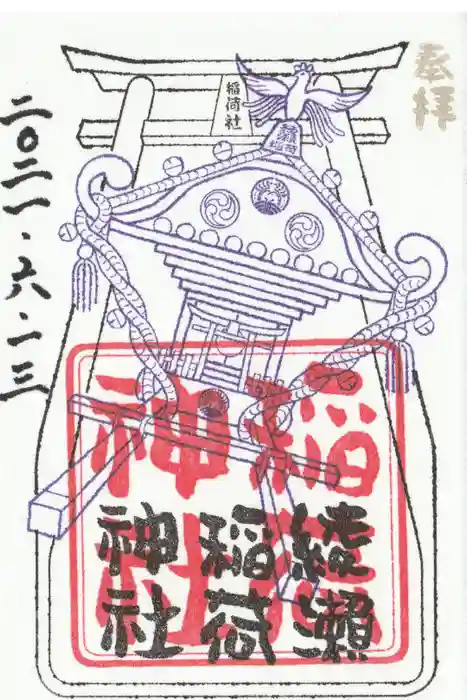 奉拝
稲荷社
二〇二一・六・一三
稲荷
神社
綾瀬
稲荷
神社